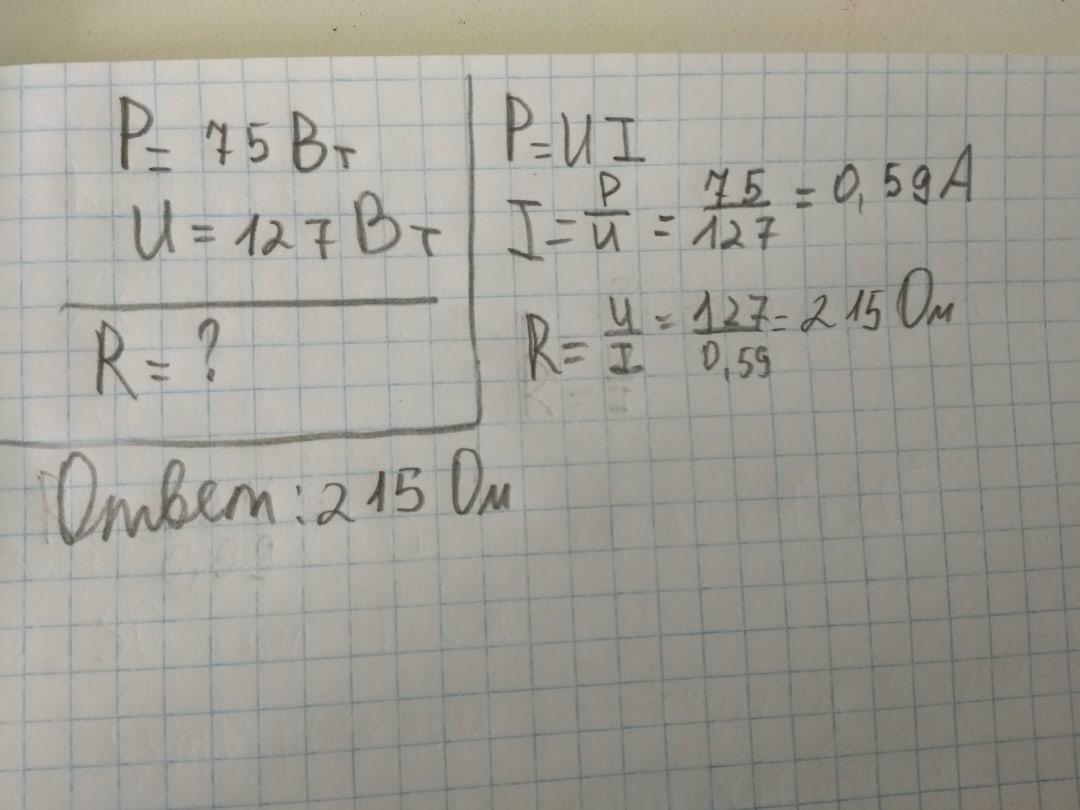 P= 75 Вт
U = 127 Вт
R = ?
P=UI
I = P/U = 75/127 = 0,59А
R = U/I = 127/0,59 = 215 Ом
Ответ: 215 Ом